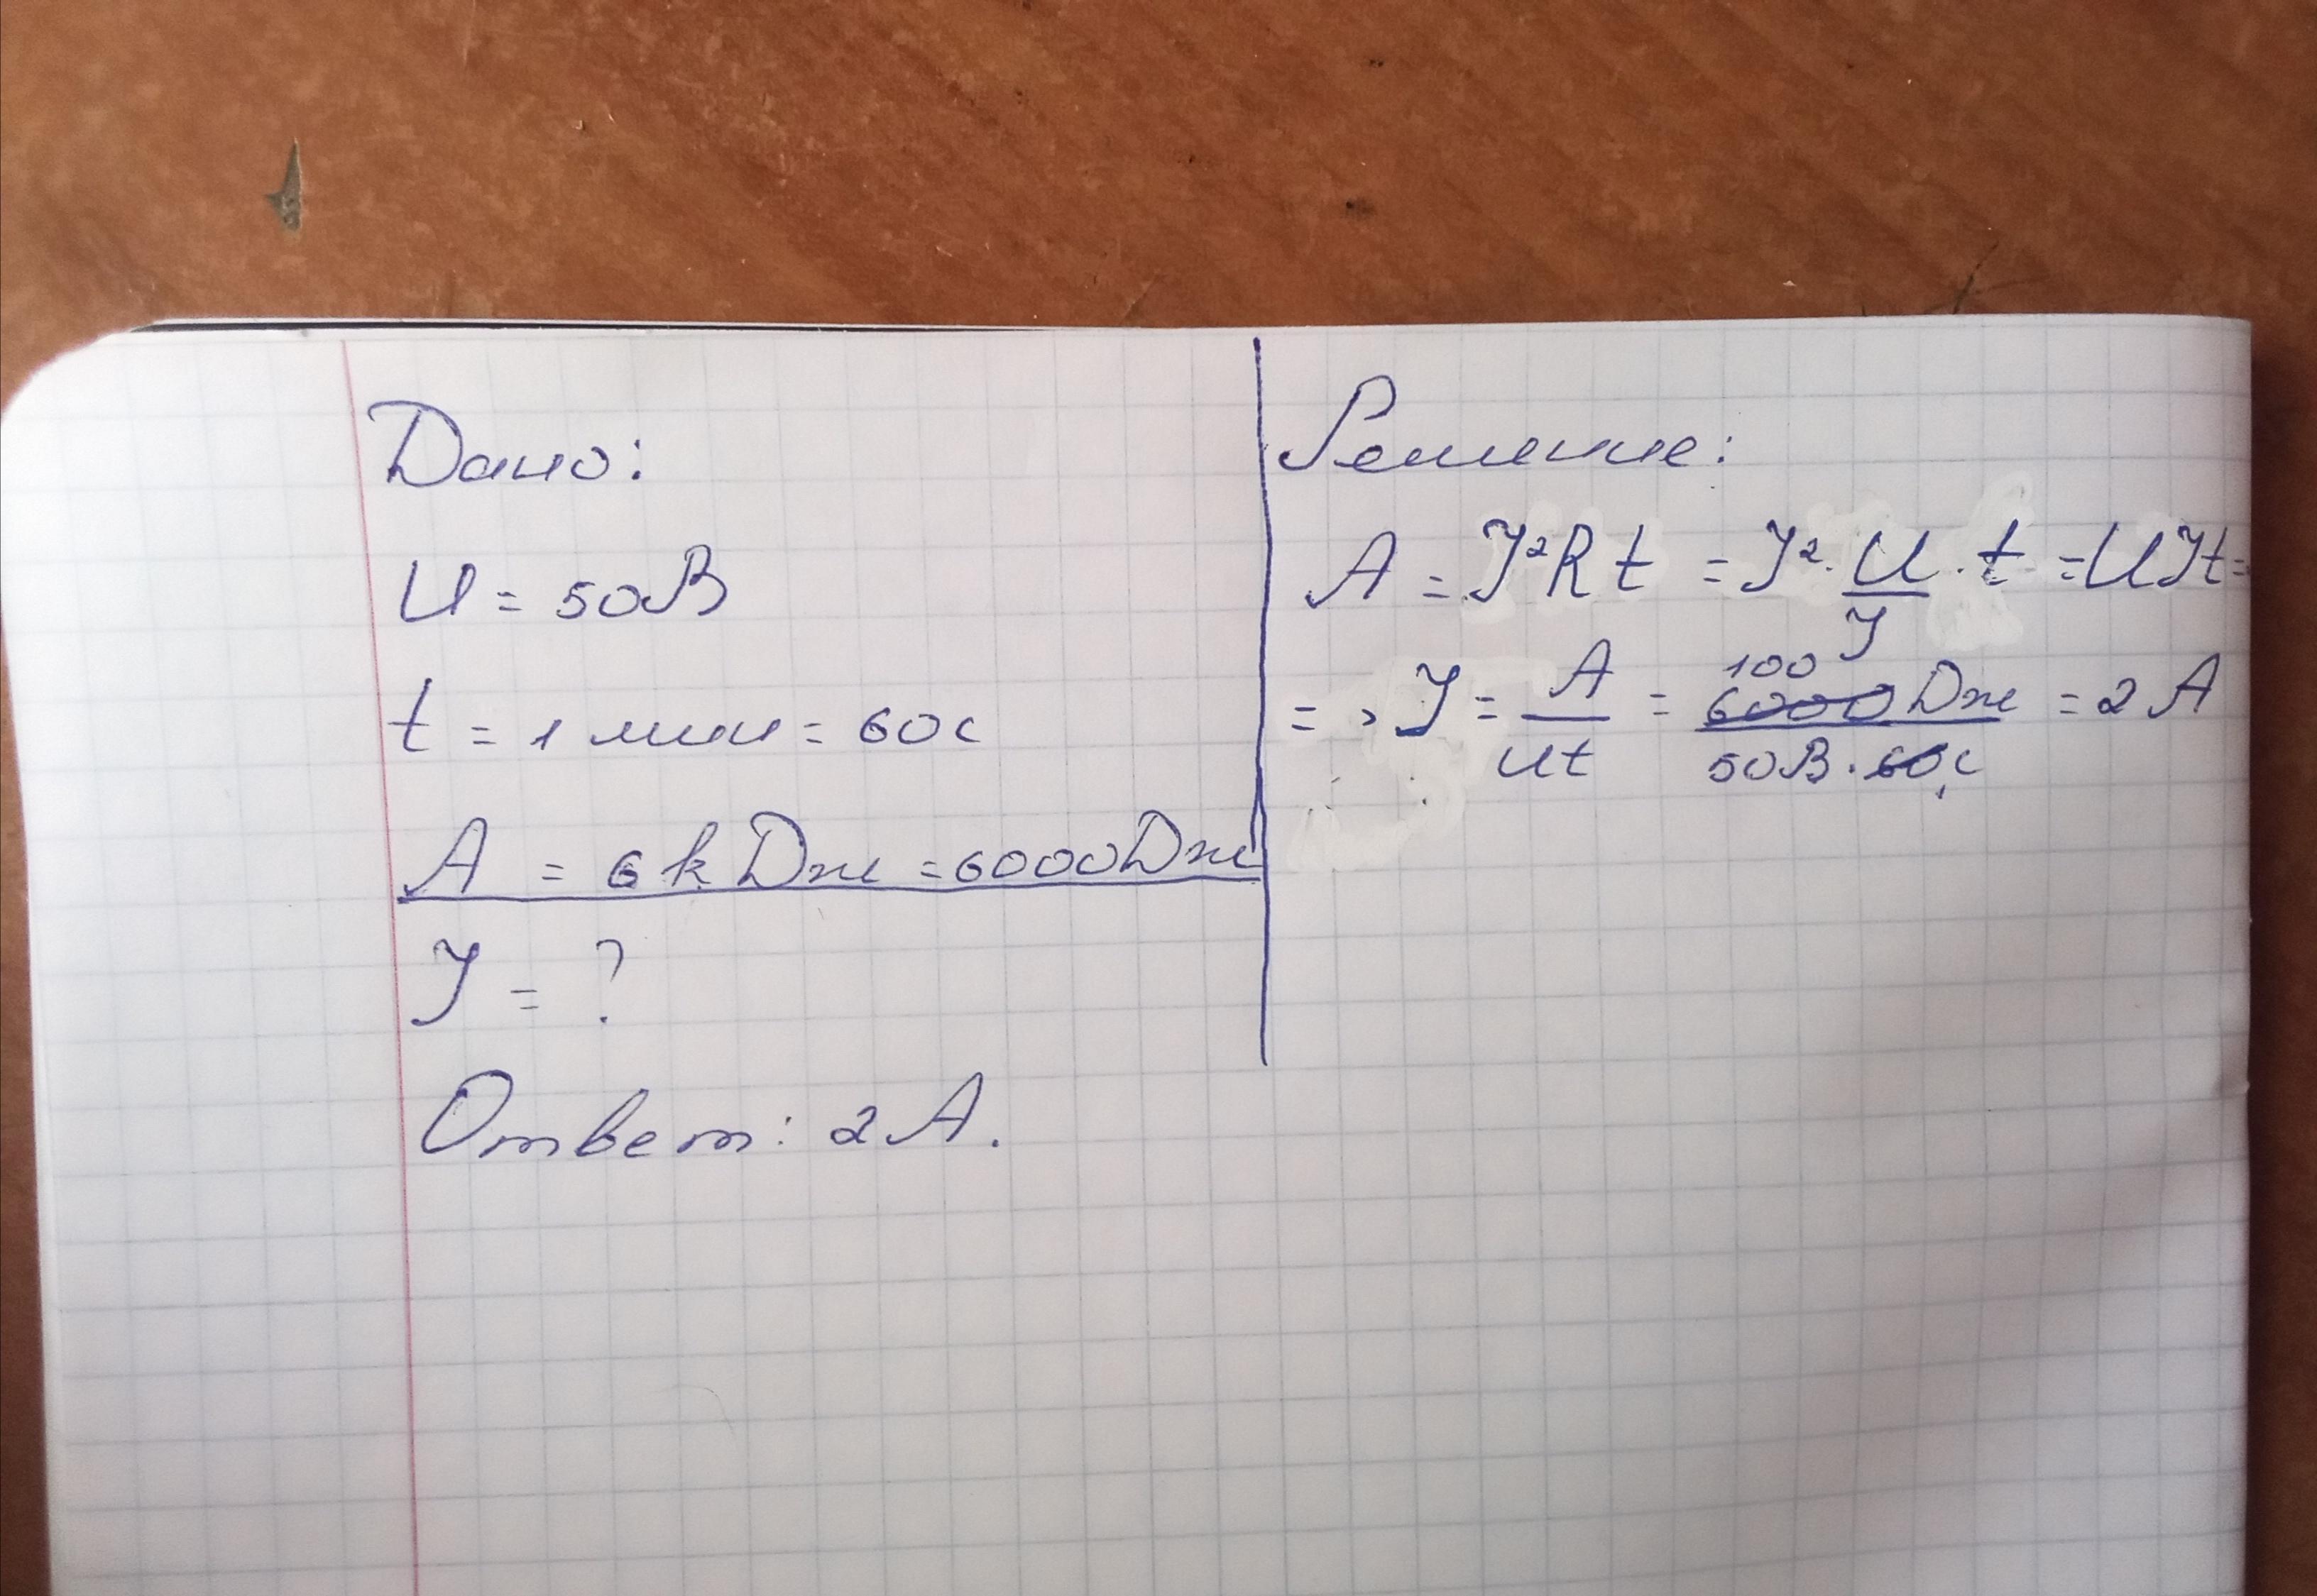 Дано:
U = 50В
t = 1 мин = 60с
A = 6 кДж = 6000Дж
I = ?
Ответ: 2А.
Решение:
A = I²Rt = I² · U/I · t = UIt =
= > I = A/Ut = 100 6000Дж/50В · 60с = 2 А